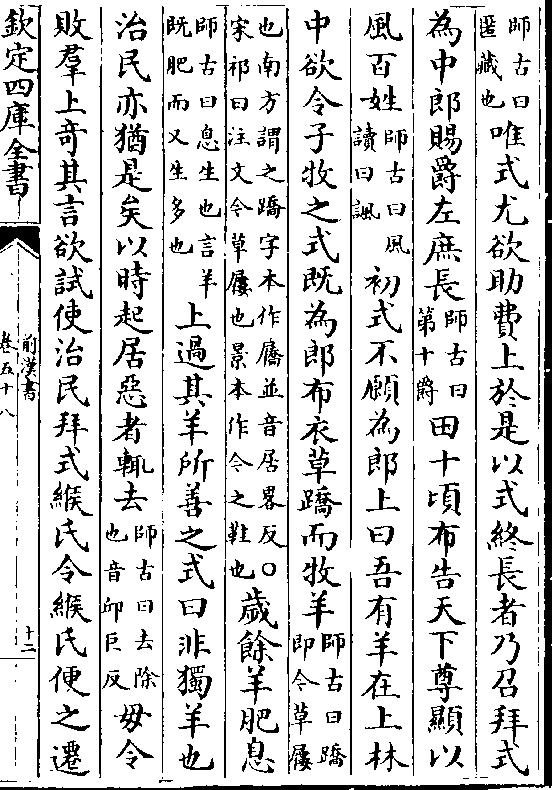 師古曰匿藏也唯式尤欲助費上於是以式終長者乃召拜式
為中郎賜爵左庶長師古曰第十爵田十頃布告天下尊顯以
風百姓師古曰風讀曰諷初式不願為郎上曰吾有羊在上林
中欲令子牧之式既為郎布衣草蹻而牧羊師古曰蹻即今草屨
也南方謂之蹻字本作屩並音居畧反○宋祁曰注文今草屨也景本作今之鞋也歲餘羊肥息
師古曰息生也言羊既肥而又生多也上過其羊所善之式曰非獨羊也
治民亦猶是矣以時起居惡者輒去師古曰去除也音丘巨反毋令
敗羣上竒其言欲試使治民拜式緱氏令緱氏便之遷
欽定四庫全書
前漢書
卷五十八
十二